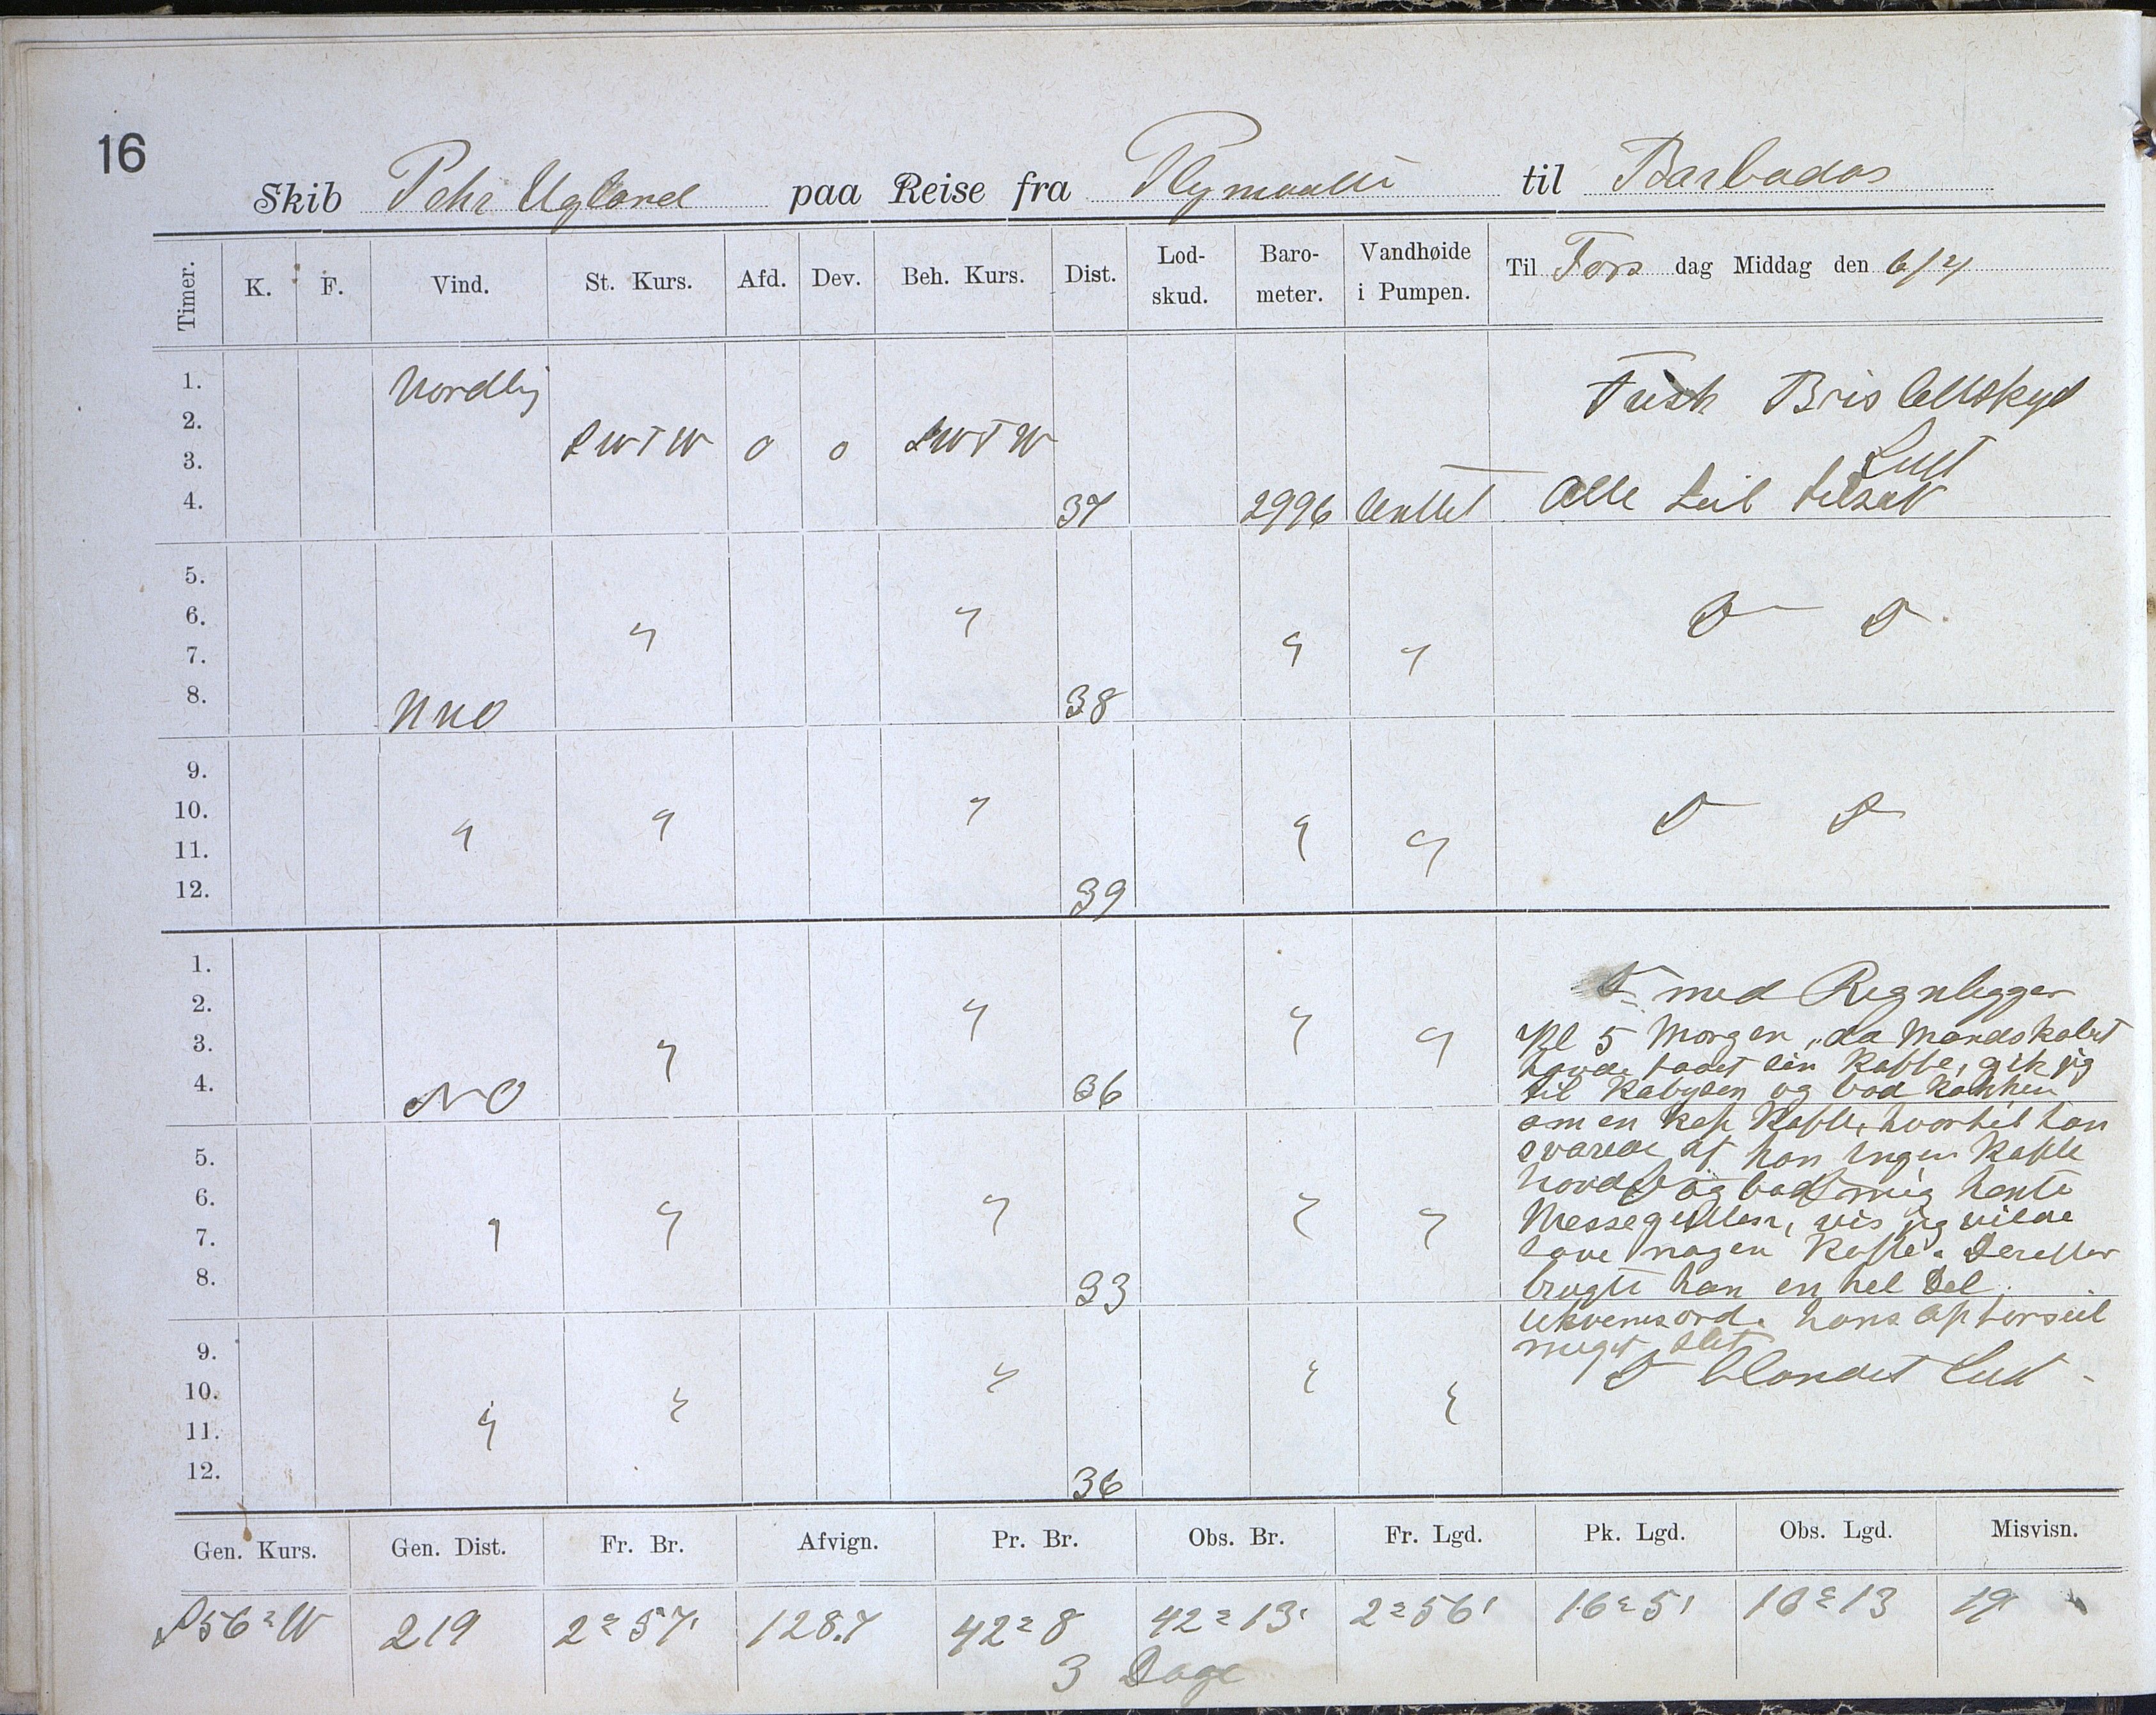 16
Skib Pehr Ugland paa Reise fra Plymouth til Barbados
Timer. K. F. Vind. St. Kurs. Afd. Dev. Beh. Kurs. Dist. Lod-skud. Baro-meter. Vandhøide i Pumpen. Til Tors dag Middag den 6/4
1. Nordlig Frisk Bris Overskyet
2. SWTW 0 0 SWTW Luft
3.
4. 37 2996 lenset Alle Seil tilsat
5.
6. " " D D
7. " "
8. NNO 38
9.
10. " " D D
11. " " "
12. 39
1. D med Regnbyger
2. " " Kl 5 Morgen, da Mandskabet
3. " " havde faaet sin Kaffe, gik jeg
4. NO 36 til Kabysen og bad Kokken
om en Kop Kaffe, hvortil han
5. svarede at han ingen Kaffe
6. " " " havde og bad mig hente
7. " " Messegutten, vis jeg vilde
lave nogen Kaffe. Derefter
8. 33 brugte han en hel Del
ukvemsord. hans opførseil
9. meget slet
10. " " " D blandet Luft
11. " "
12. 36
Gen. Kurs. Gen. Dist. Fr. Br. Afvign. Pr. Br. Obs. Br. Fr. Lgd. Pk. Lgd. Obs. Lgd. Misvisn.
S56°W 219 2°57' 128.7 42°8 42°13' 2°56' 16°51 16°13 19
3 Dage